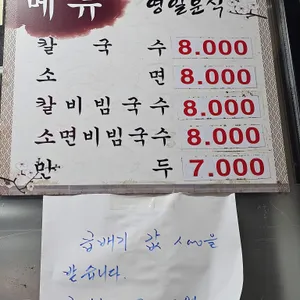 메뉴
영일분식
칼국수 8.000
소면 8.000
칼비빔국수 8.000
소면비빔국수 8.000
만두 7.000
곱배기 값
받습니다.